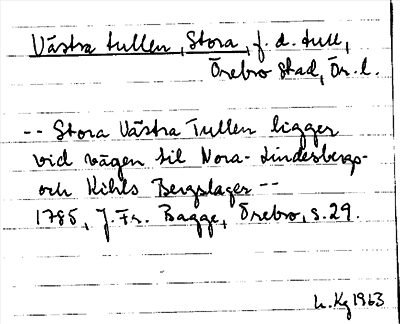 Västra tullen, Stora, f. d. tull,
Örebro stad, Ör. l.
-- Stora Västra Tullen ligger
vid vägen til Nora- Lindesbergs-
och Kihls Bergslager --
1785, J. Fr. Bagge, Örebro, s. 29.
h. Kg 1963